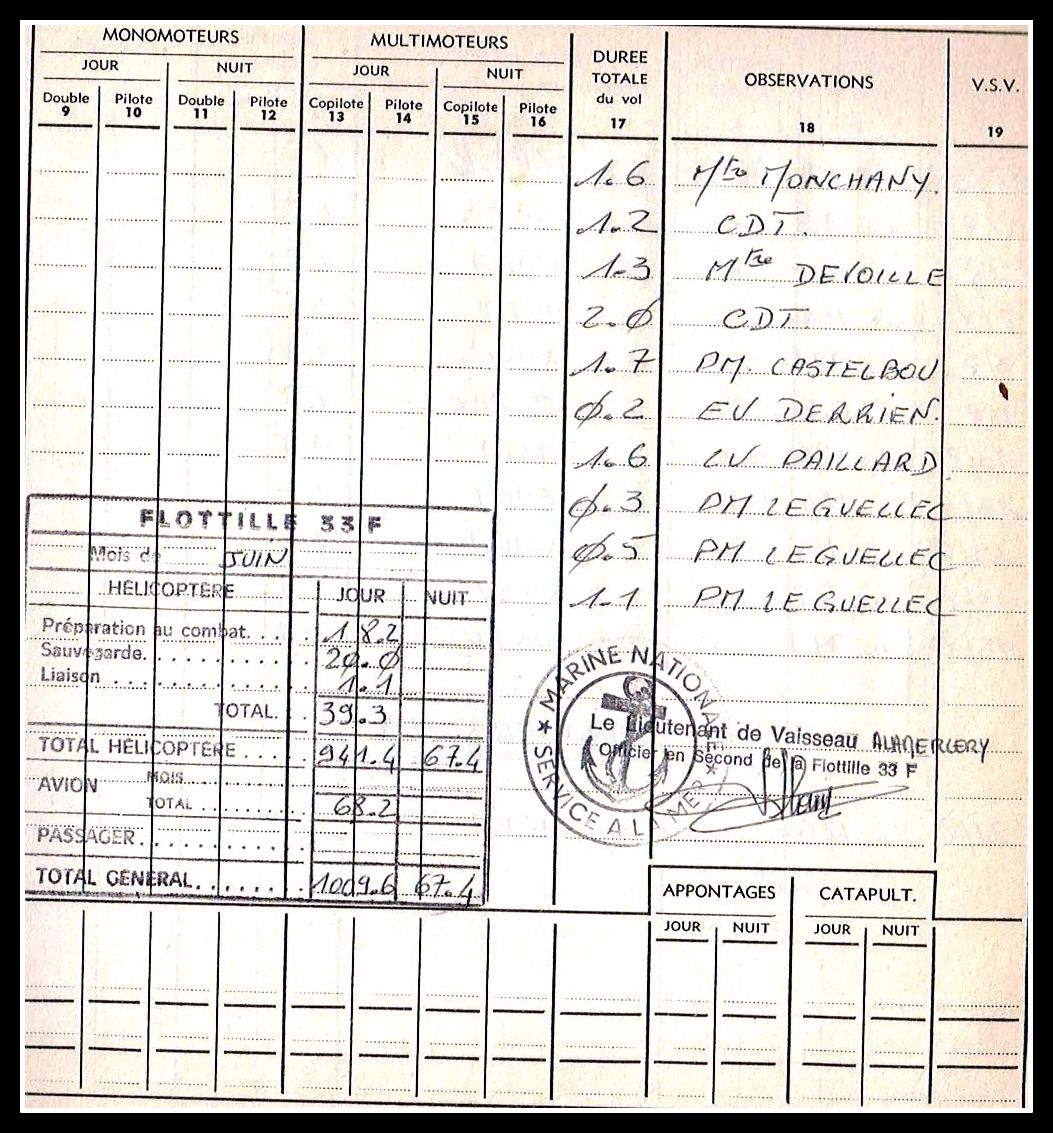 MONOMOTEURS MULTIMOTEURS DUREE TOTALE du vol OBSERVATIONS V.S.V.
JOUR NUIT JOUR NUIT
Double Pilote Double Pilote Copilote Pilote Copilote Pilote
9 10 11 12 13 14 15 16 17 18 19
1.6 Mtre MONCHANY.
1.2 CDT.
1.3 Mtre DEVOILLE
2.Ø CDT.
1.7 PM. CASTELBOU
Ø.2 EV DERRIEN.
1.6 LV PAILLARD
Ø.3 PM LEGUELLEC
Ø.5 PM LEGUELLEC
1.1 PM LEGUELLEC
FLOTTILLE 33 F
Mois de JUIN
HÉLICOPTÈRE JOUR NUIT
Préparation au combat. . . . . 18.2
Sauvegarde. . . . . . . . . . . 20.Ø
Liaison . . . . . . . . . . . . . 1.1
TOTAL. . . 39.3
TOTAL HÉLICOPTÈRE . . . . 941.4 67.4
AVION MOIS
TOTAL 68.2
PASSAGER. . . . . . . . . . .
TOTAL GÉNÉRAL. . . . . . . . 1009.6 67.4
MARINE NATIONALE
★ SERVICE A LA MER ★
Le Lieutenant de Vaisseau
Officier en Second de la Flottille 33 F
APPONTAGES CATAPULT.
JOUR NUIT JOUR NUIT